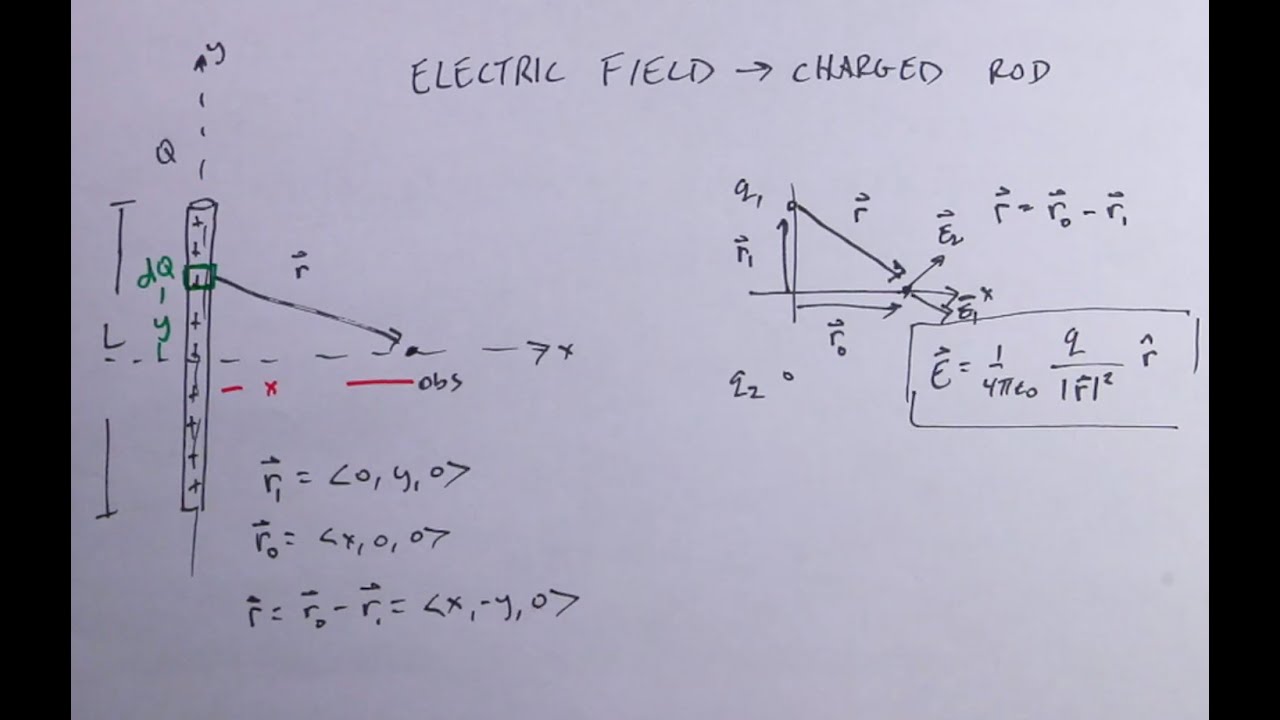 ELECTRIC FIELD → CHARGED ROD
y
Q
+
+
dQ
+
y
+
L
+
+
+
+
+
r⃗
x
x
obs
r⃗₁ = <0, y, 0>
r⃗₀ = <x, 0, 0>
r⃗ = r⃗₀ - r⃗₁ = <x, -y, 0>
q₁
r⃗
r⃗ = r⃗₀ - r⃗₁
r⃗₁
E⃗₂
x
E⃗₁
r⃗₀
q₂
E⃗ = 1/4πε₀ q/|r⃗|² r̂